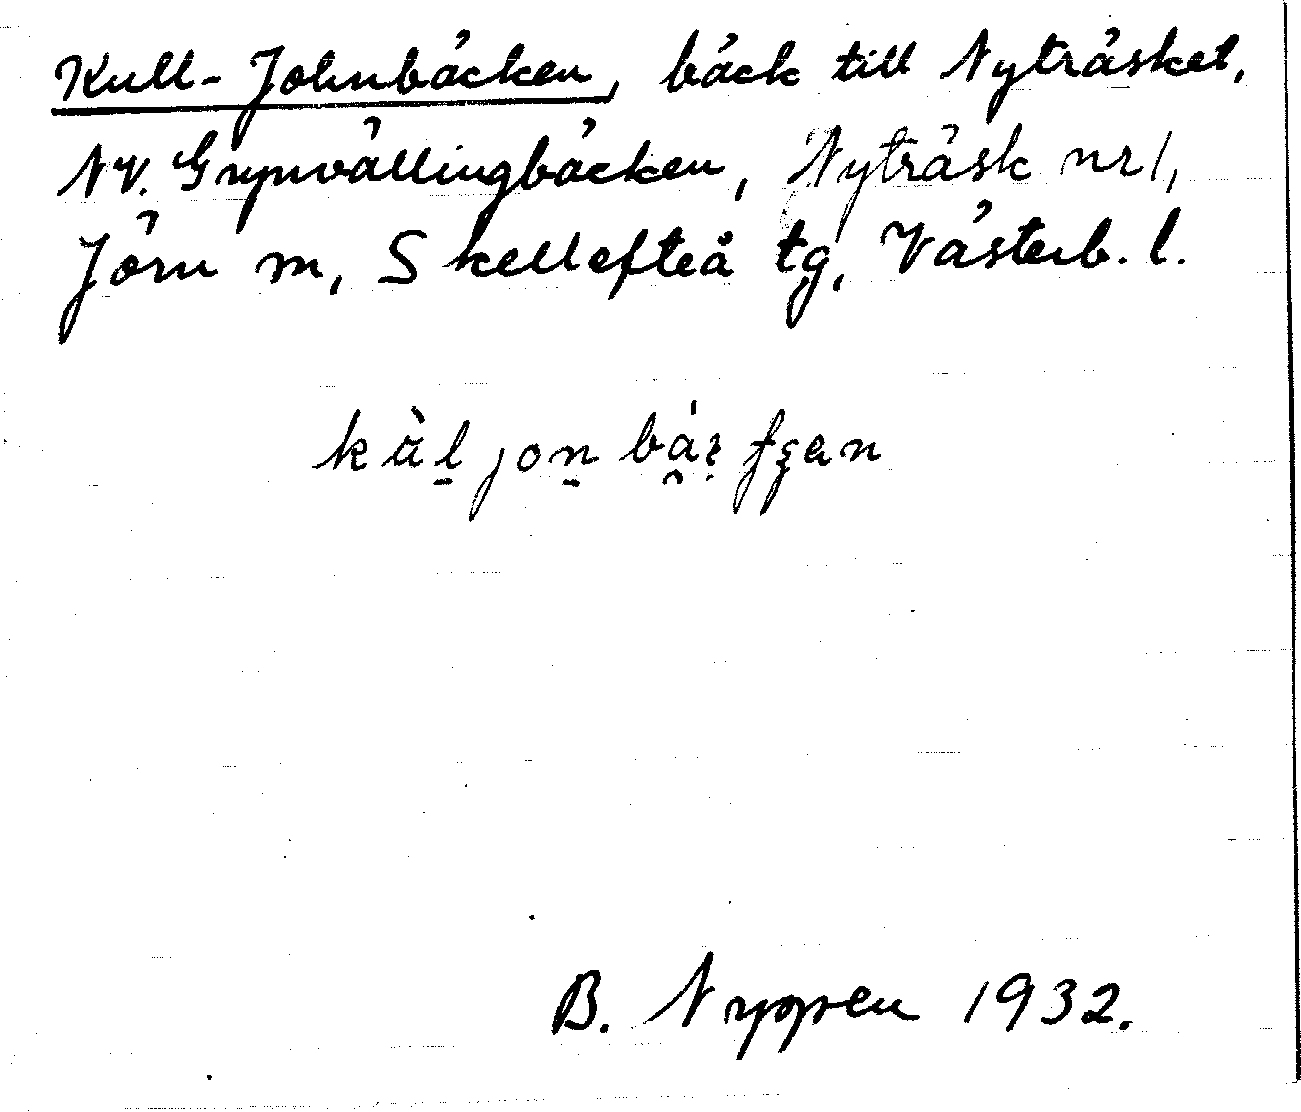 Kull-Johnbäcken, bäck till Nyträsket,
NV. Grynvällingbäcken, Nyträsk nr 1,
Jörn sn, Skellefteå tg, Västerb. l.
B. Nyppen 1932.